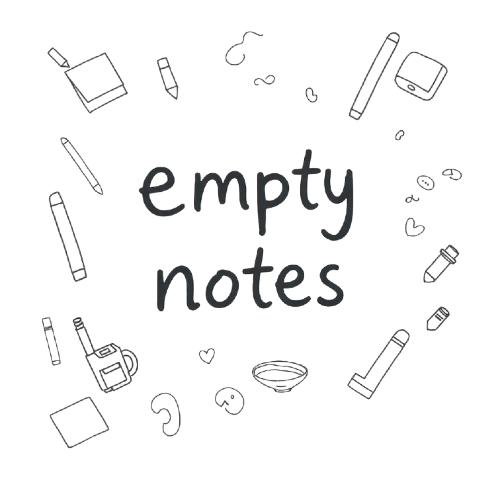 empty
notes